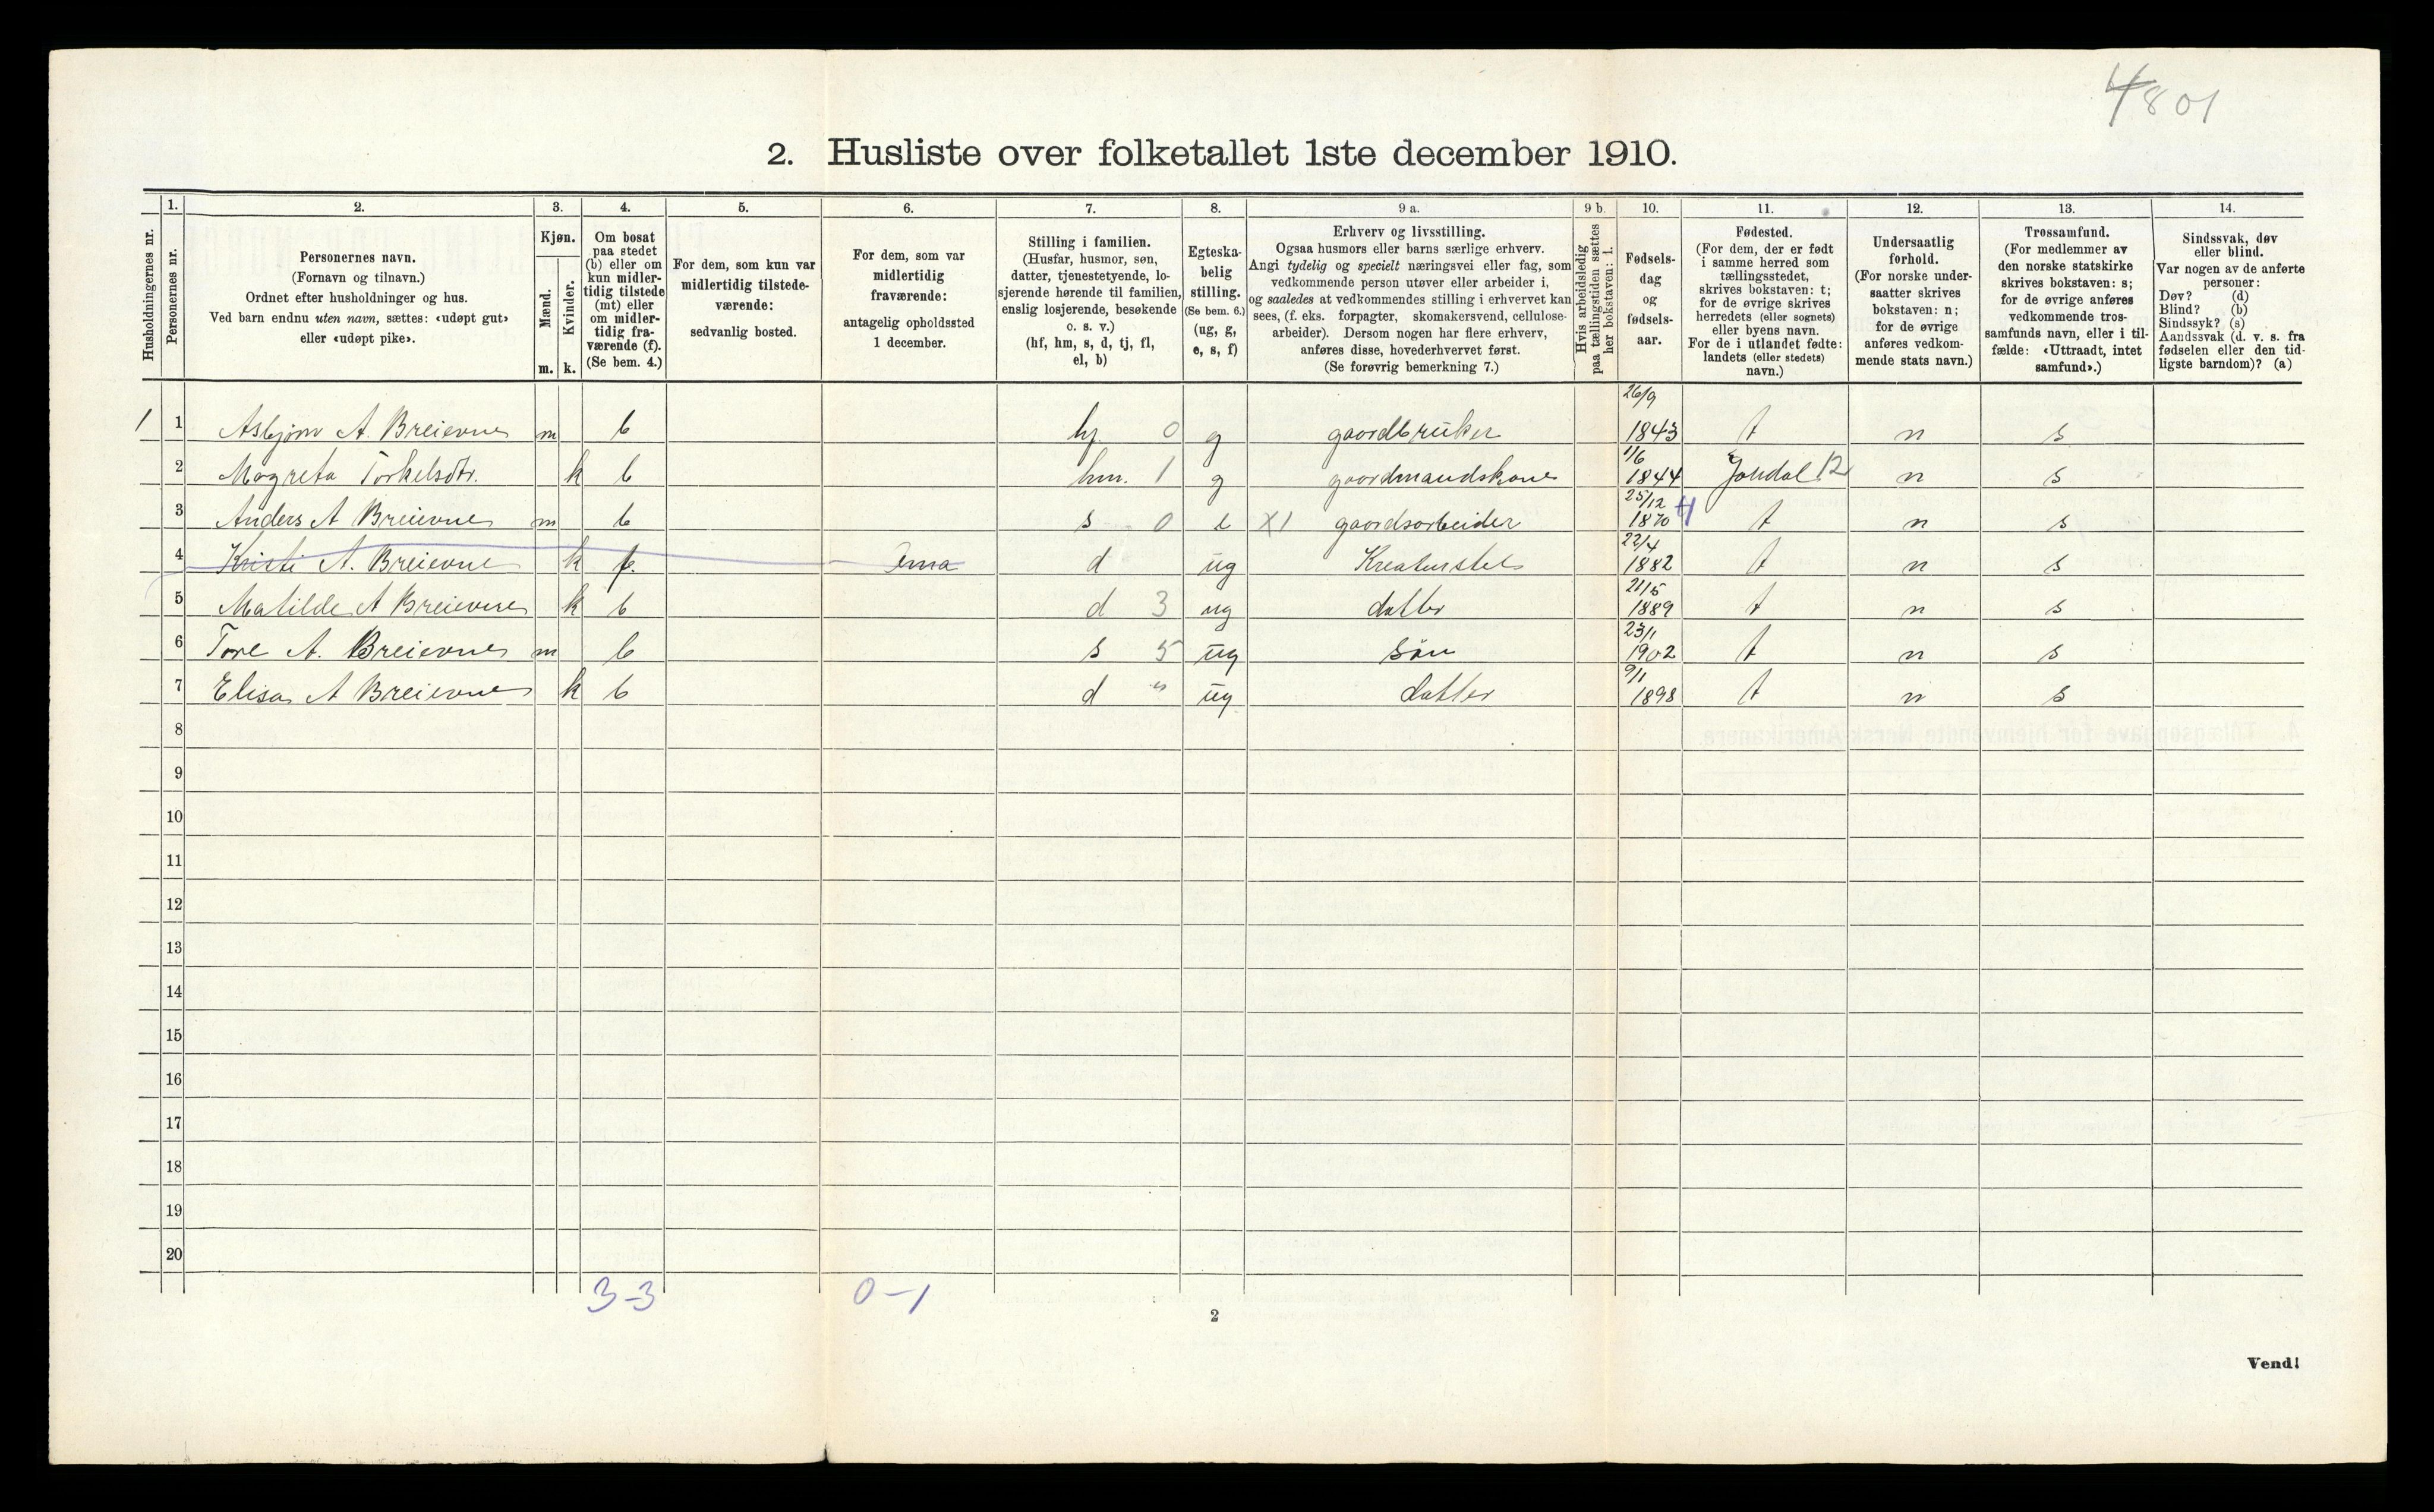 4801
2. Husliste over folketallet 1ste december 1910.
Husholdningernes nr.
1.
Personernes nr.
2.
Personernes navn.
(Fornavn og tilnavn.)
Ordnet efter husholdninger og hus.
Ved barn endnu uten navn, sættes: «udøpt gut»
eller «udøpt pike».
3.
Kjøn.
Mænd.
Kvinder.
m. k.
4.
Om bosat
paa stedet
(b) eller om
kun midler-
tidig tilstede
(mt) eller
om midler-
tidig fra-
værende (f).
(Se bem. 4.)
5.
For dem, som kun var
midlertidig tilstede-
værende:
sedvanlig bosted.
6.
For dem, som var
midlertidig
fraværende:
antagelig opholdssted
1 december.
7.
Stilling i familien.
(Husfar, husmor, søn,
datter, tjenestetyende, lo-
sjerende hørende til familien,
enslig losjerende, besøkende
o. s. v.)
(hf, hm, s, d, tj, fl,
el, b)
8.
Egteska-
belig
stilling.
(Se bem. 6.)
(ug, g,
e, s, f)
9 a.
Erhverv og livsstilling.
Ogsaa husmors eller barns særlige erhverv.
Angi tydelig og specielt næringsvei eller fag, som
vedkommende person utøver eller arbeider i,
og saaledes at vedkommendes stilling i erhvervet kan
sees, (f. eks. forpagter, skomakersvend, cellulose-
arbeider). Dersom nogen har flere erhverv,
anføres disse, hovederhvervet først.
(Se forøvrig bemerkning 7.)
9 b.
Hvis arbeidsledig
paa tællingstiden sættes
her bokstaven: l.
10.
Fødsels-
dag
og
fødsels-
aar.
11.
Fødested.
(For dem, der er født
i samme herred som
tællingsstedet,
skrives bokstaven: t;
for de øvrige skrives
herredets (eller sognets)
eller byens navn.
For de i utlandet fødte:
landets (eller stedets)
navn.)
12.
Undersaatlig
forhold.
(For norske under-
saatter skrives
bokstaven: n;
for de øvrige
anføres vedkom-
mende stats navn.)
13.
Trossamfund.
(For medlemmer av
den norske statskirke
skrives bokstaven: s;
for de øvrige anføres
vedkommende tros-
samfunds navn, eller i til-
fælde: «Uttraadt, intet
samfund».)
14.
Sindssvak, døv
eller blind.
Var nogen av de anførte
personer:
Døv? (d)
Blind? (b)
Sindssyk? (s)
Aandssvak (d. v. s. fra
fødselen eller den tid-
ligste barndom)? (a)
1 1 Asbjørn A. Breievne m b hf. 0 g gaardbruker 26/9 1843 t n s
2 Magreta Torkelsdtr. k b hm. 1 g gaardmandskone 1/6 1844 Jondal 12 n s
3 Anders A Breievne m b s 0 e X1 gaardsarbeider 25/12 1870 4 t n s
4 Kristi A. Breievne k f. d ug Kreaturstel 22/4 1882 t n s
5 Matilde A Breievne k b d 3 ug datter 21/5 1889 t n s
6 Tore A. Breievne m b s 5 ug søn 23/1 1902 t n s
7 Elisa A Breievne k b d " ug datter 9/1 1898 t n s
8
9
10
11
12
13
14
15
16
17
18
19
20
3-3 0-1
2
Vend!